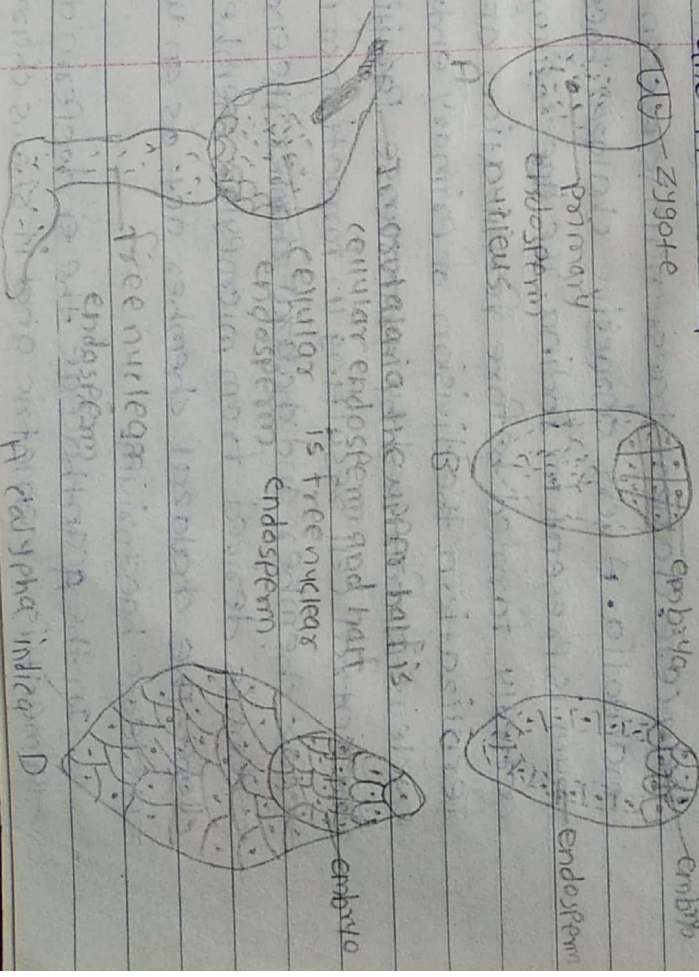 zygote
primary
endosperm
nucleus
A
embryo
B
embryo
endosperm
In crotalaria the upper half is
cellular endosperm and half
is free nuclear
endosperm
cellular
endosperm
free nuclear
endosperm
Acalypha indica
D
embryo